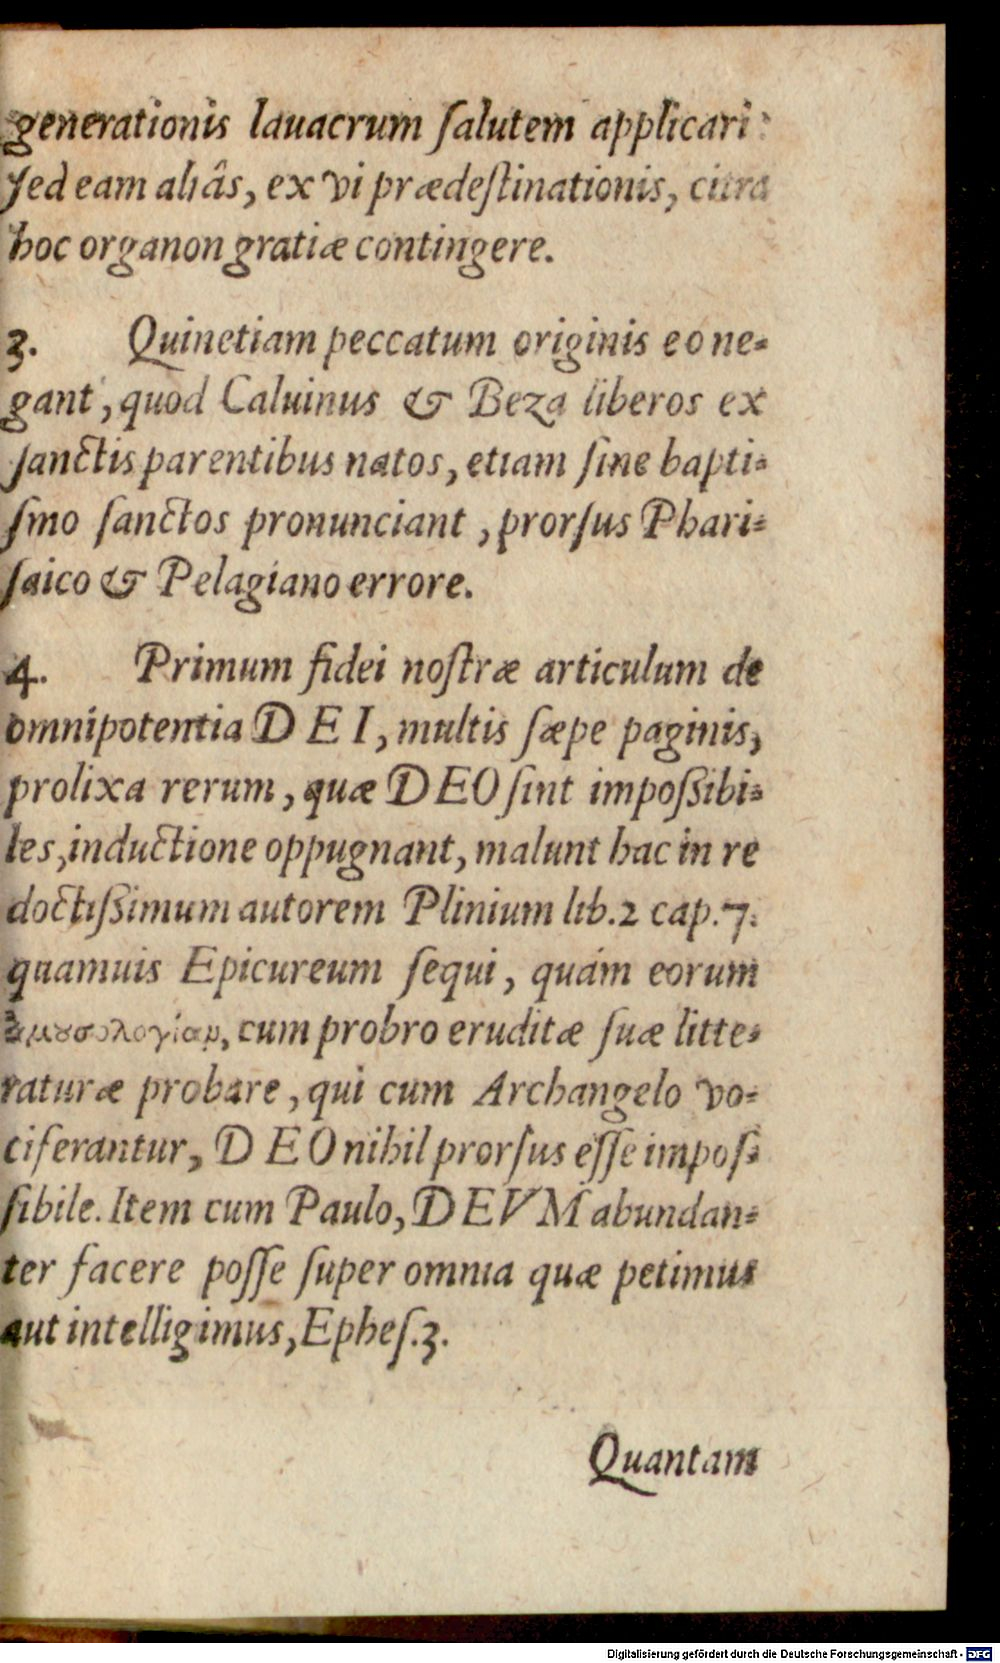 generationis lauacrum ſalutem applicari:
ſed eam aliâs, ex vi prædeſtinationis, citra
hoc organon gratiæ contingere.
3. Quinetiam peccatum originis eo ne-
gant, quod Caluinus & Beza liberos ex
ſanctis parentibus natos, etiam ſine bapti-
ſmo ſanctos pronunciant, prorſus Phari-
ſaico & Pelagiano errore.
4. Primum fidei noſtræ articulum de
omnipotentia DEI, multis ſæpe paginis,
prolixa rerum, quæ DEO ſint impoſsibi-
les, inductione oppugnant, malunt hac in re
doctiſsimum autorem Plinium lib. 2 cap. 7.
quamuis Epicureum ſequi, quám eorum
cum probro eruditæ ſuæ litte-
raturæ probare, qui cum Archangelo vo-
ciferantur, DEO nihil prorſus eſſe impoſ-
ſibile. Item cum Paulo, DEVM abundan-
ter facere poſſe ſuper omnia quæ petimus
aut intelligimus, Epheſ. 3.
Quantam
Digitalisierung gefördert durch die Deutsche Forschungsgemeinschaft - DFG